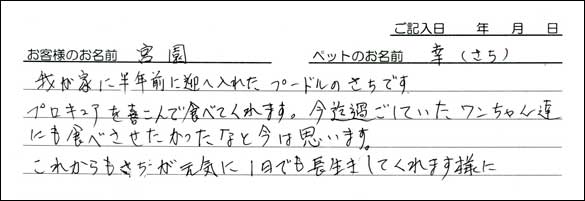 ご記入日 年 月 日
お客様のお名前 宮園 ペットのお名前 幸(さち)
我が家に半年前に迎へ入れたプードルのさちです
プロキュアを喜こんで食べてくれます。今迄過ごしていたワンちゃん達
にも食べさせたかったなと今は思います。
これからもさちが元気に1日でも長生きしてくれます様に